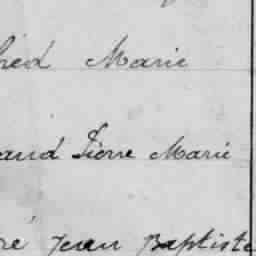 hed Marie
and Pierre Marie
ré Jean Baptiste